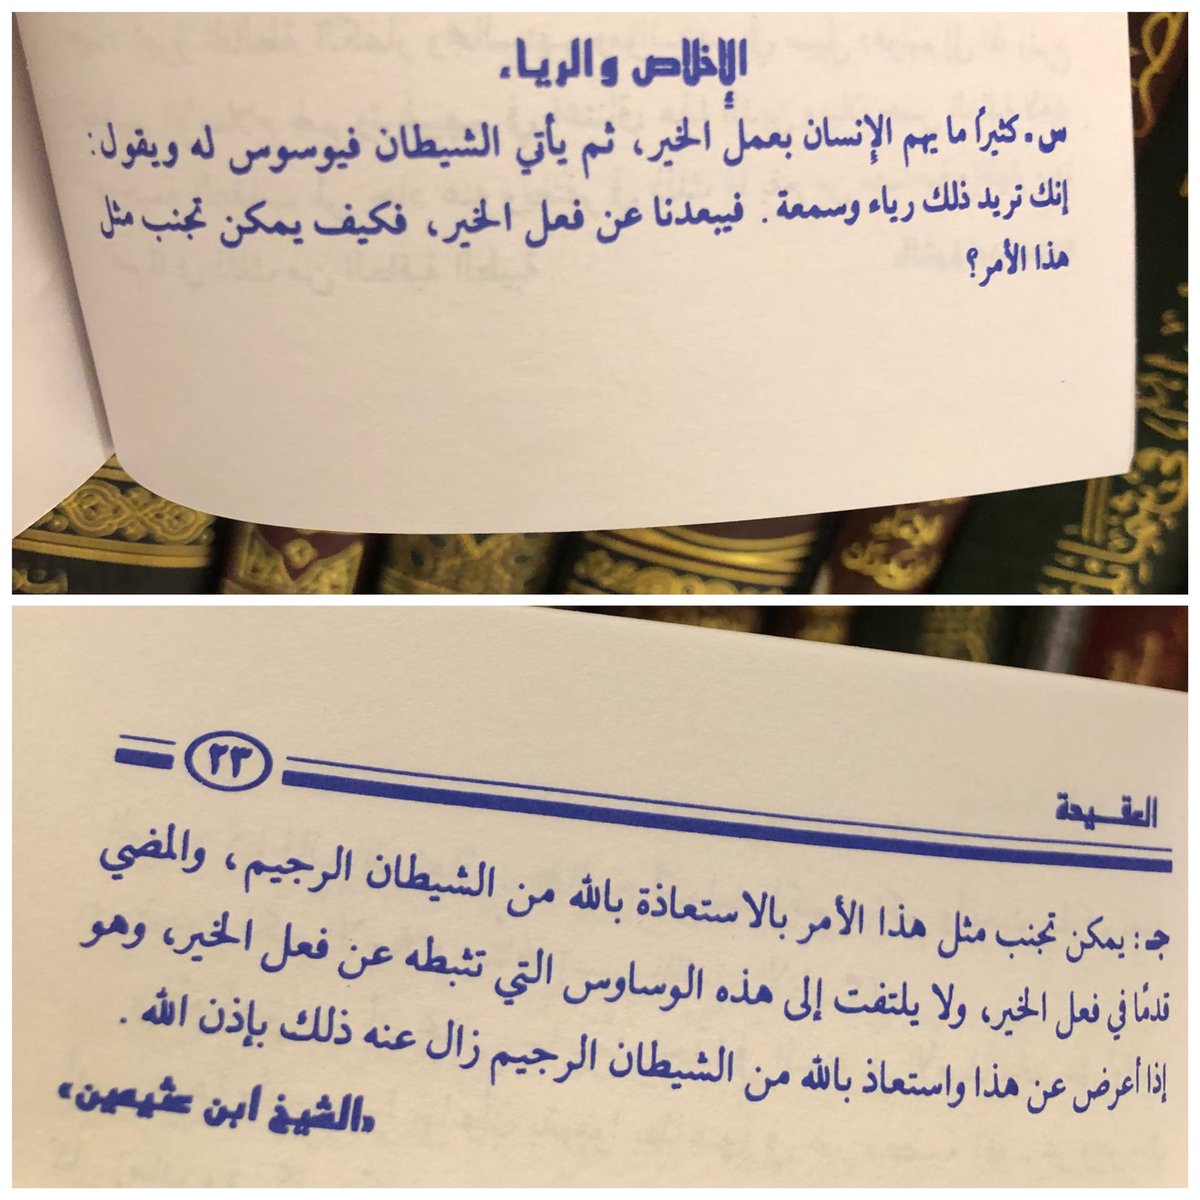 الإخلاص والرياء
س - كثيراً ما يهم الإنسان بعمل الخير، ثم يأتي الشيطان فيوسوس له ويقول:
إنك تريد ذلك رياء وسمعة. فيبعدنا عن فعل الخير، فكيف يمكن تجنب مثل
هذا الأمر؟
٢٣
العقــيدة
جـ: يمكن تجنب مثل هذا الأمر بالاستعاذة بالله من الشيطان الرجيم، والمضي
قدمًا في فعل الخير، ولا يلتفت إلى هذه الوساوس التي تثبطه عن فعل الخير، وهو
إذا أعرض عن هذا واستعاذ بالله من الشيطان الرجيم زال عنه ذلك بإذن الله.
«الشيخ ابن عثيمين»